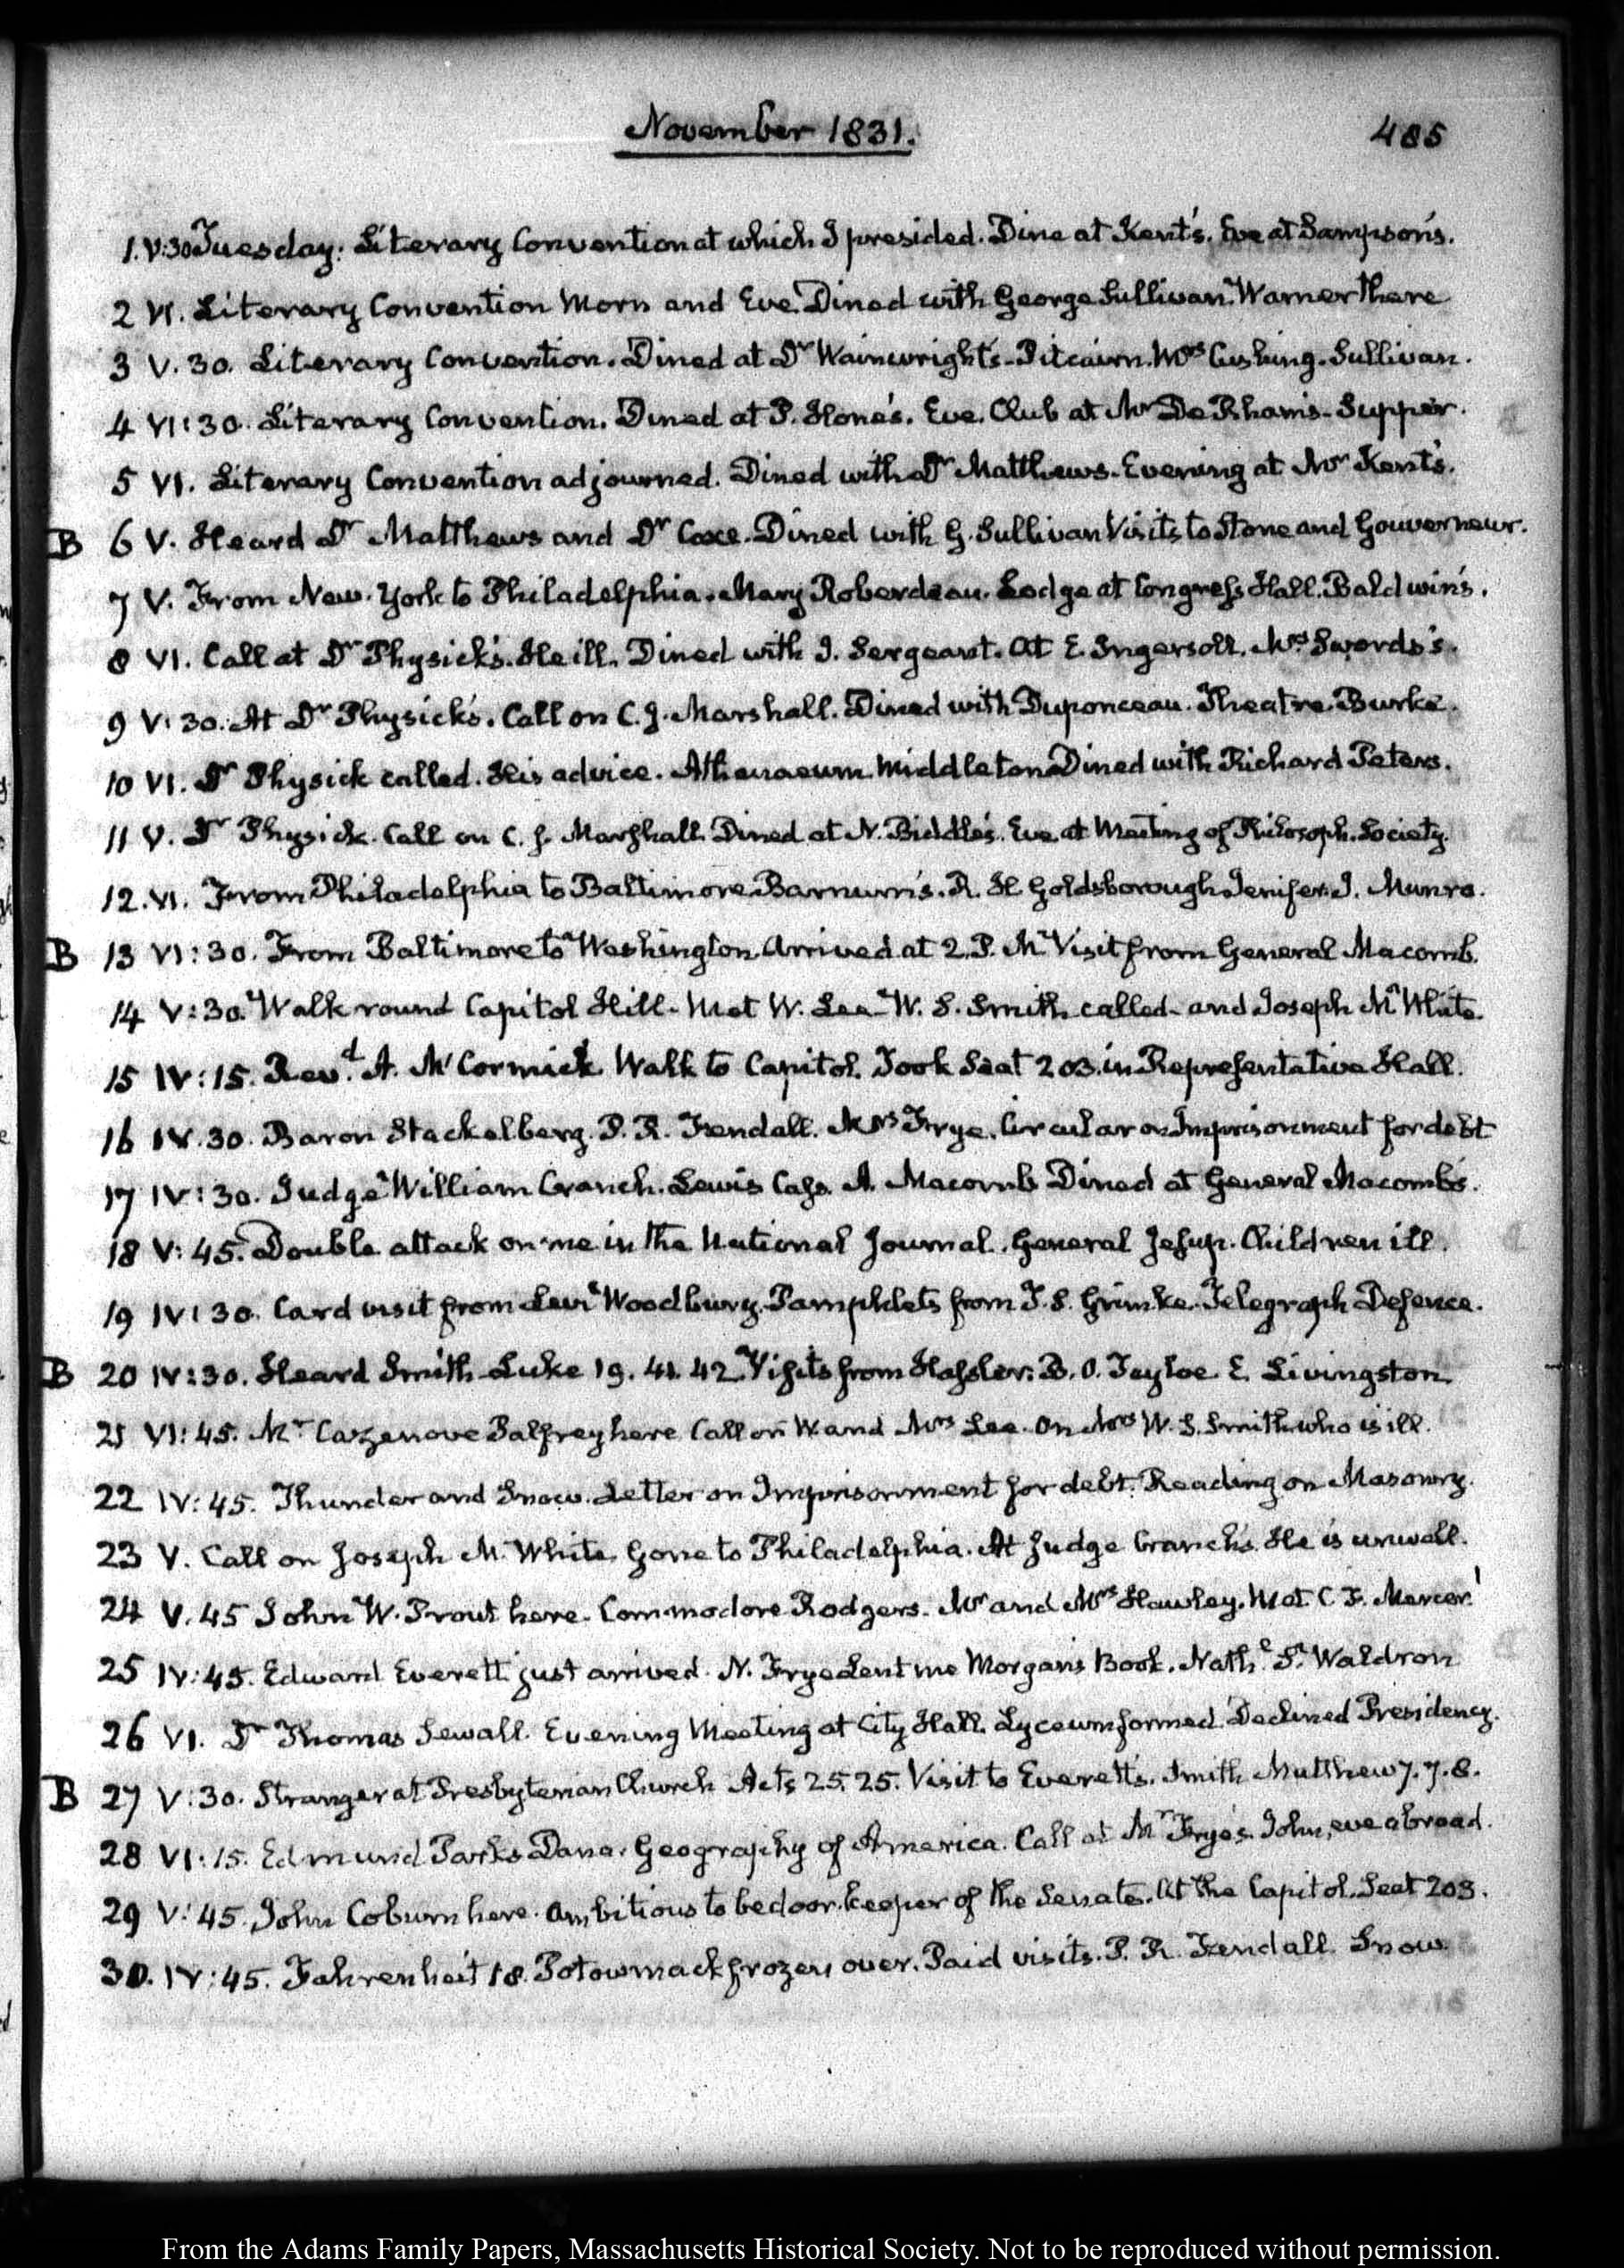 November 1831. 485
1. V:30 Tuesday. Literary Convention at which I presided. Dine at Kent's. Eve at Sampson's.
2 VI. Literary Convention Morn and Eve. Dined with George Sullivan. Warner there
3 V. 30. Literary Convention. Dined at Dr Wainwright's. Pitcairn. Mrs Cushing. Sullivan.
4 VI:30. Literary Convention. Dined at P. Hone's. Eve. Club at Mr De Rham's. Supper.
5 VI. Literary Convention adjourned. Dined with Dr Matthews. Evening at Mr Kent's.
B 6 V. Heard Dr Matthews and Dr Coxe. Dined with G. Sullivan Visits to Hone and Gouverneur.
7 V. From New-York to Philadelphia. Mary Roberdeau. Lodge at Congress Hall. Baldwin's.
8 VI. Call at Dr Physick's. He ill. Dined with J. Sergeant. At E. Ingersoll. Mrs Swords's.
9 V:30. At Dr Physick's. Call on C. J. Marshall. Dined with Duponceau. Theatre. Burke.
10 VI. Dr Physick called. His advice. Athenaeum Middleton Dined with Richard Peters.
11 V. Dr Physick. Call on C. J. Marshall. Dined at N. Biddle's. Eve. at Meeting of Philosoph. Society.
12. VI. From Philadelphia to Baltimore Barnum's. R. H Goldsborough Jenifer. J. Munro.
B 13 VI:30. From Baltimore to Washington. Arrived at 2. P. M. Visit from General Macomb.
14 V:30. Walk round Capitol Hill. Met W. Lee W. S. Smith called and Joseph M. White.
15 IV:15. Revd. A. McCormick. Walk to Capitol. Took Seat 203. in Representative Hall.
16 IV.30. Baron Stackelberg. P. R. Fendall. Mrs Frye. Circular on Imprisonment for debt
17 IV:30. Judge William Cranch. Lewis Cass. A. Macomb Dined at General Macomb's.
18 V:45. Double attack on me in the National Journal. General Jesup. Children ill.
19 IV:30. Card visit from Levi Woodbury. Pamphlets from T. S. Grimke. Telegraph Defence.
B 20 IV:30. Heard Smith Luke 19. 41. 42. Visits from Hassler: B. O. Tayloe. E. Livingston
21 VI:45. Mr Cazenove Palfrey here Call on W. and Mrs Lee. On Mrs W. S. Smith who is ill.
22 IV:45. Thunder and Snow. Letter on Imprisonment for debt. Reading on Masonry.
23 V. Call on Joseph M. White. Gone to Philadelphia. At Judge Cranch's. He is unwell.
24 V.45 John W. Prout here. Commodore Rodgers. Mr and Mrs Hawley. Met C. F. Mercer.
25 IV:45. Edward Everett just arrived. N. Frye Lent me Morgan's Book. Nathl. S. Waldron
26 VI. Dr Thomas Sewall. Evening Meeting at City Hall. Lyceum formed. Declined Presidency.
B 27 V:30. Stranger at Presbyterian Church Acts 25. 25. Visit to Everett's. Smith Matthew 7. 7. 8.
28 VI:15. Edmund Parks Dana. Geography of America. Call at Mr Frye's. John, eve abroad.
29 V:45. John Coburn here. Ambitious to be door-keeper of the Senate. At the Capitol. Seat 203.
30. IV:45. Fahrenheit 18. Potowmack frozen over. Paid visits. P. R. Fendall. Snow
From the Adams Family Papers, Massachusetts Historical Society. Not to be reproduced without permission.